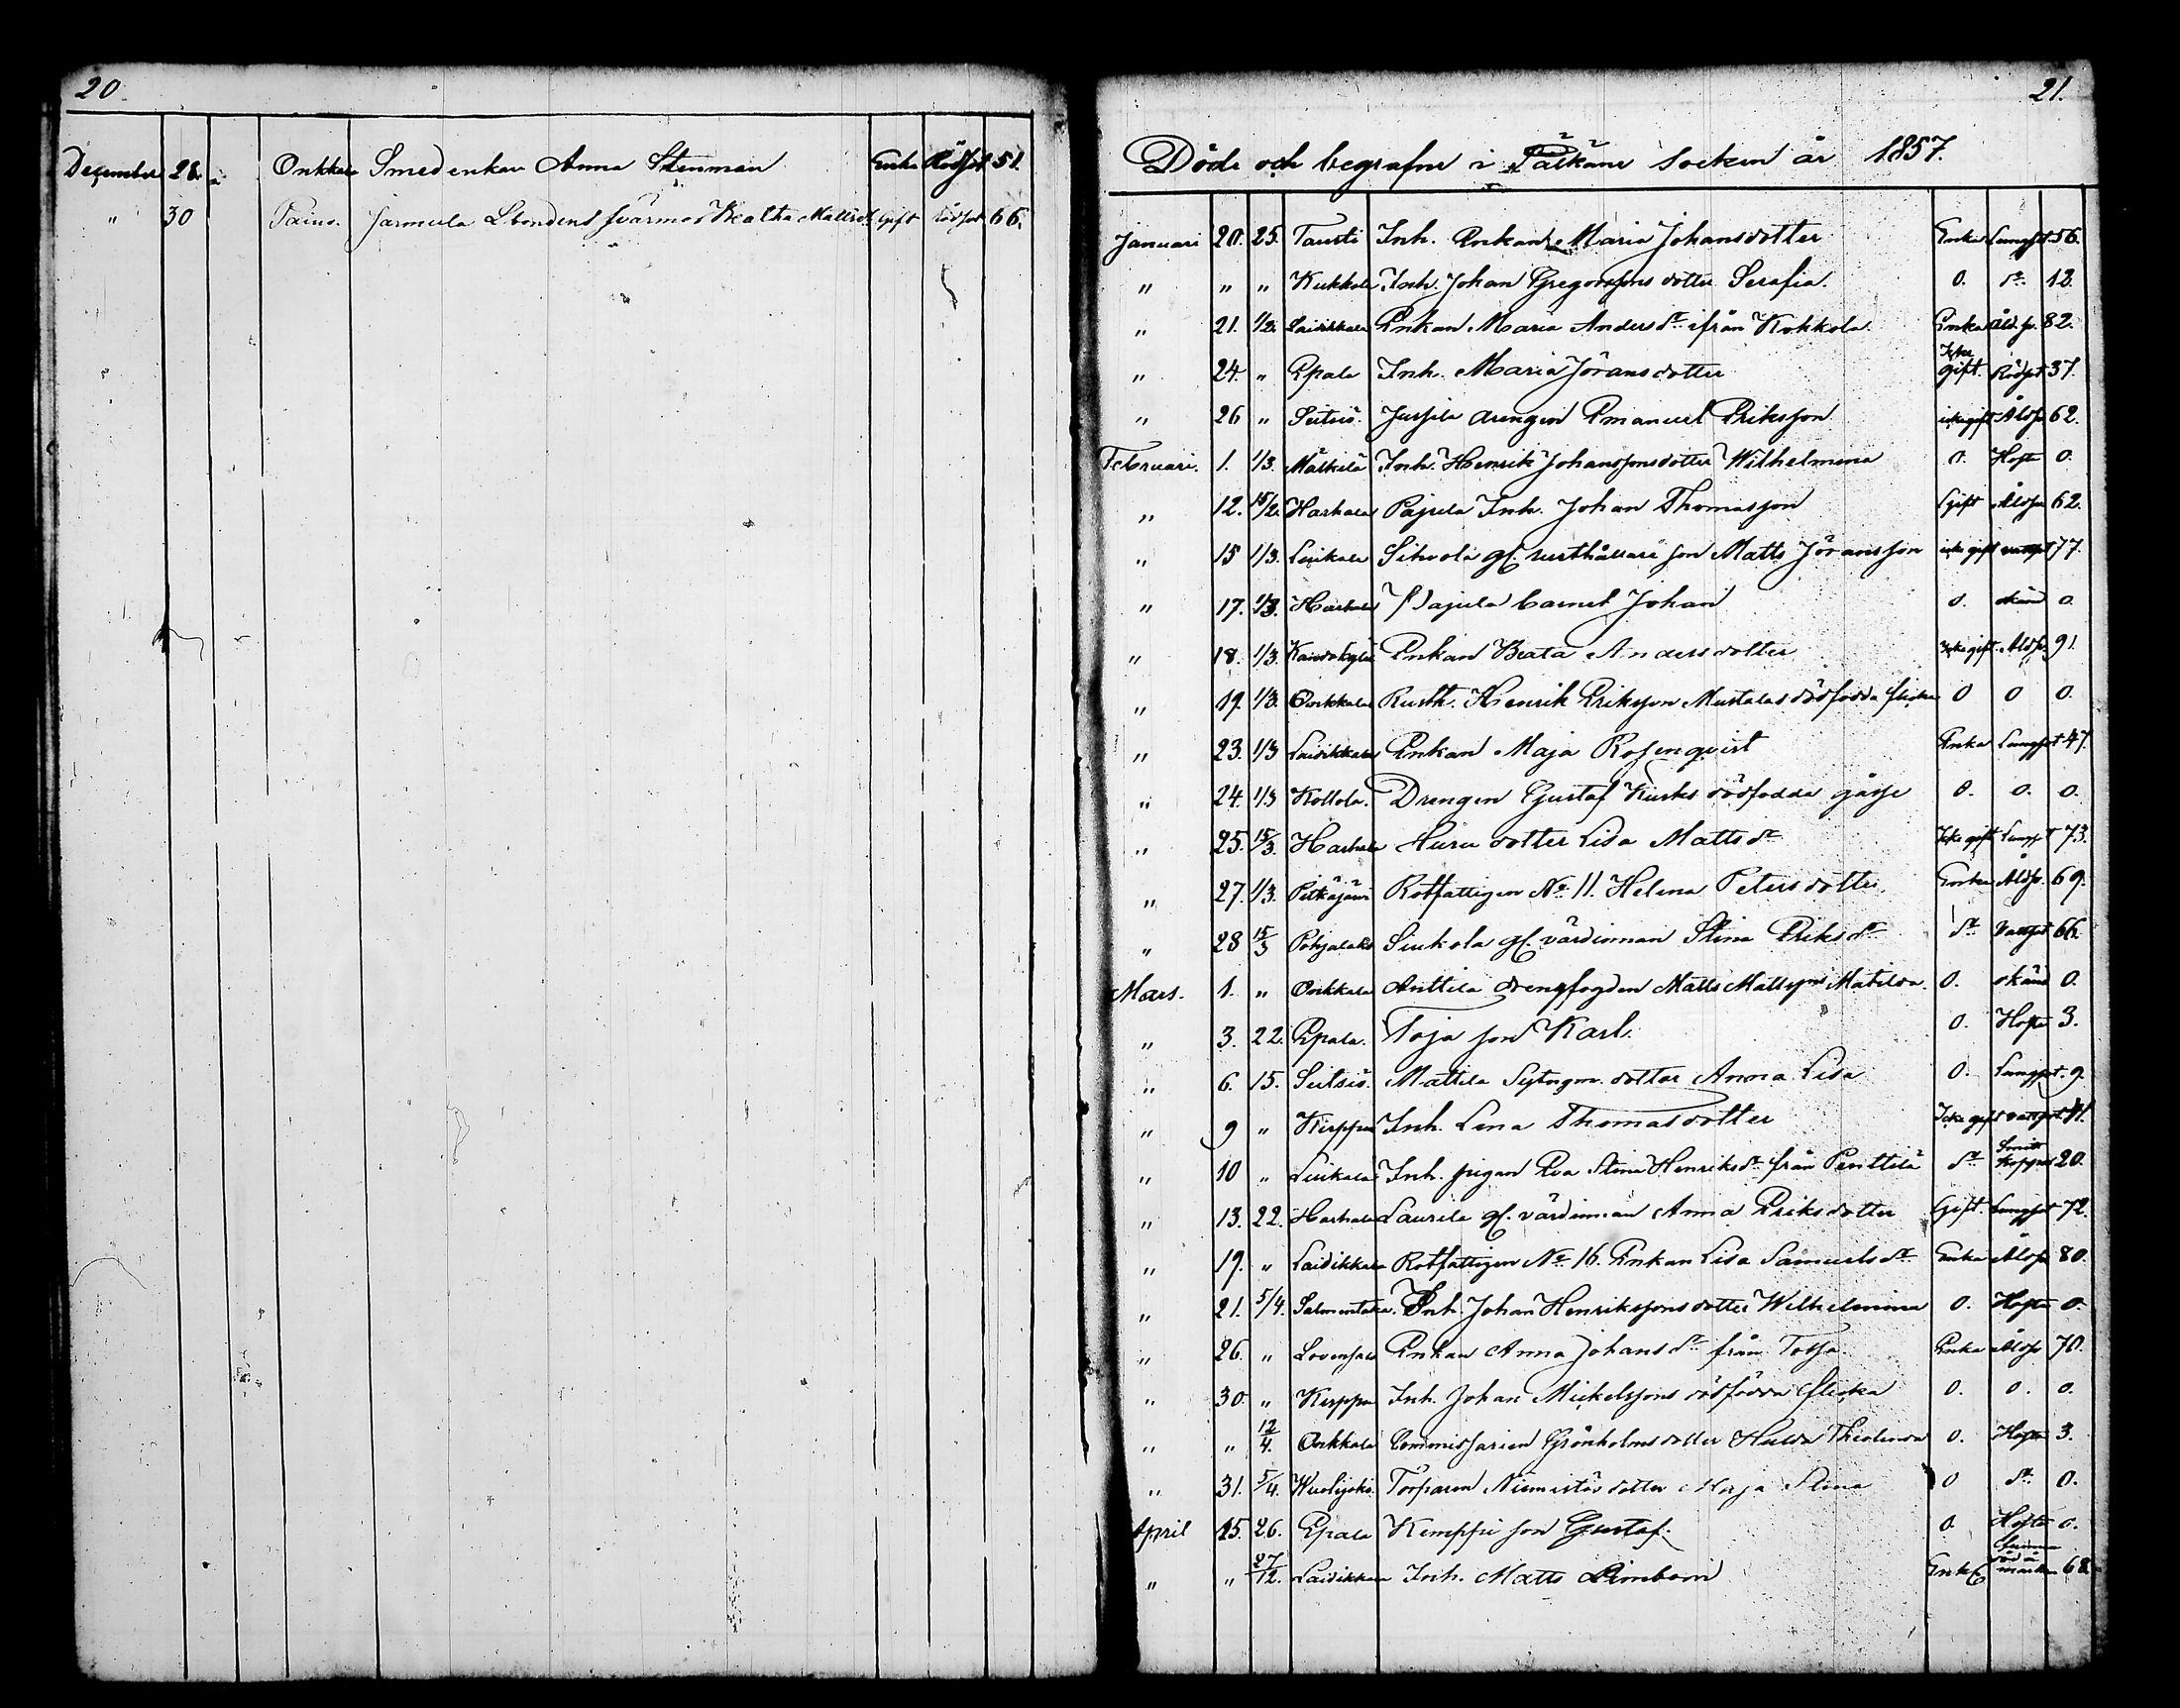 20
December 28. Onkkala Smedenkan Anna Stenman Enka Rödsot 51.
" 30 Painō. Jarmula Lbondens svärmor Beatha Mattsdr Gift rödsot 66.
21.
Döde och begrafne i Pälkäne Socken år 1857.
Januari 20. 25. Tausti Inh. Enkan Maria Johansdotter Enka Lungsot 56.
" " " Kukkola Inh. Johan Gregorssons dotter Serafia. 0. do 12.
" 21. 1/2. Laidikkala Enkan Maria Anders dr ifrån Kokkola Enka Åld.sv. 82.
" 24. " Epala Inh. Maria Jöransdotter Icke gift. Rödsot 37.
" 26 " Seitsis. Jussila drengen Emanuel Eriksson icke gift Åldsv 62.
Februari. 1. 1/3. Mälkilä Inh. Henrik Johanssons dotter Wilhelmina 0. Hosta 0.
" 12. 15/2. Harhala Pajula Inh. Johan Thomasson Gift Åldsv 62.
" 15 1/3. Luikala Sihvola gl. rusthållare son Matts Jöransson icke gift vattsot 77.
" 17. 1/3. Harhala Pajula barnet Johan 0. okänd 0.
" 18. 1/3. Kaivokylä Enkan Beata Andersdotter Icke gift Åldsv 91.
" 19. 1/3. Onkkala Rusth. Henrik Eriksson Mustalas dödfödda flicka 0 0 0.
" 23. 1/3 Laidikkala Enkan Maja Rosenqvist Enka Lungsot 47.
" 24. 1/3 Kollola. Drengen Gustaf Kurks dödfödda gåsse 0. 0. 0.
" 25. 15/3. Harhala Huru dotter Lisa Matts dr Icke gift Lungsot 73.
" 27. 1/3. Pitkäjärvi Rotfattigen No 11. Helena Petersdotter. Enka Åldsv. 69.
" 28 15/3 Pohjalaks Siukola gl. värdinnan Stina Eriks dr do Vattsot 66.
Mars. 1. " Onkkala Anttila drengfogden Matts Mattssons Matilda. 0. okänd 0.
" 3. 22. Epala. Toja son Karl. 0. Hosta 3.
" 6. 15. Seitsis. Mattila Sytngm. dotter Anna Lisa 0. Lungsot. 9
" 9 " Kirppu Inh. Lena Thomasdotter Icke gift vattsot 41.
" 10 " Luikala Inh. pigan Eva Stina Henriks dr från Penttilä do Smittkoppor 20.
" 13. 22. Harhala Laurila gl. värdinnan Anna Eriksdotter Gift. Lungsot 72.
" 19. " Laidikkala Rotfattigen No 16. Enkan Lisa Samuels dr Enka Åldsv 80.
" 21. 5/4. Salmentaka. Inh. Johan Henrikssons dotter Wilhelmina 0. Hosta 0.
" 26. " Lovensalo Enkan Anna Johans dr från Totja. Enka Åldsv 70.
" 30. " Kirppu Inh. Johan Mickelssons dödfödda flicka 0. 0. 0.
" " 12/4. Onkkala Commissarien Grönholms dotter Hulda Theolinda 0. Hosta 3.
" 31. 5/4. Kuolijoki Torparen Niemistös dotter Maja Stina 0 do 0.
April 15. 26. Epala Kemppi son Gustaf. 0. Hosta 0.
" " 27/12. Laidikkala Inh. Matts Limbom Enkl död å marken 68